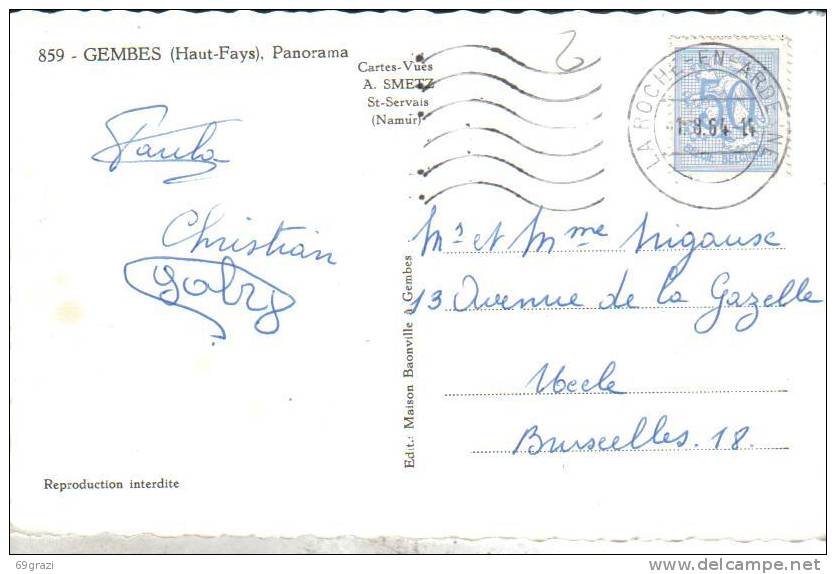 859 - GEMBES (Haut-Fays), Panorama
Cartes-Vues
A. SMETZ
St-Servais
(Namur)
LA ROCHE-EN-ARDENNE
1.8.64
50
BELGIE BELGIQUE
Paula
Christian
Gaby
Mr et Mme
13 Avenue de la Gazelle
Uccle
Bruxelles. 18.
Edit.: Maison Baonville à Gembes
Reproduction interdite
69grazi
www.delcampe.net